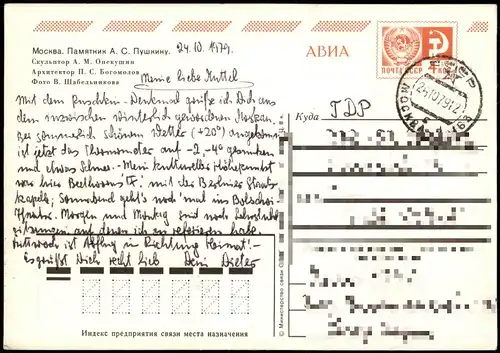 Москва. Памятник А. С. Пушкину.
Скульптор А. М. Опекушин
Архитектор П. С. Богомолов
Фото В. Шабельникова
24.10.1979.
АВИА
ПОЧТА СССР
4 коп
Meine liebe Mutter
Mit dem Puschkin-Denkmal grüße ich Dich aus
dem inzwischen winterlich gewordenen Moskau.
Bei sommerlich schönem Wetter (+20°) angekommen
ist jetzt das Thermometer auf -2, -4° gesunken
und etwas Schnee. Mein kultureller Höhepunkt
war hier Beethovens IX. mit der Berliner Staats
kapelle; Sonnabend geht's noch mal ins Bolschoi-
Theater. Morgen und Montag sind noch
sitzungen auf denen ich zu referieren habe.
Mittwoch ist Abflug in Richtung Heimat! -
Es grüßt Dich recht lieb Dein Dieter
Куда ГДР
Индекс предприятия связи места назначения
© Министерство связи